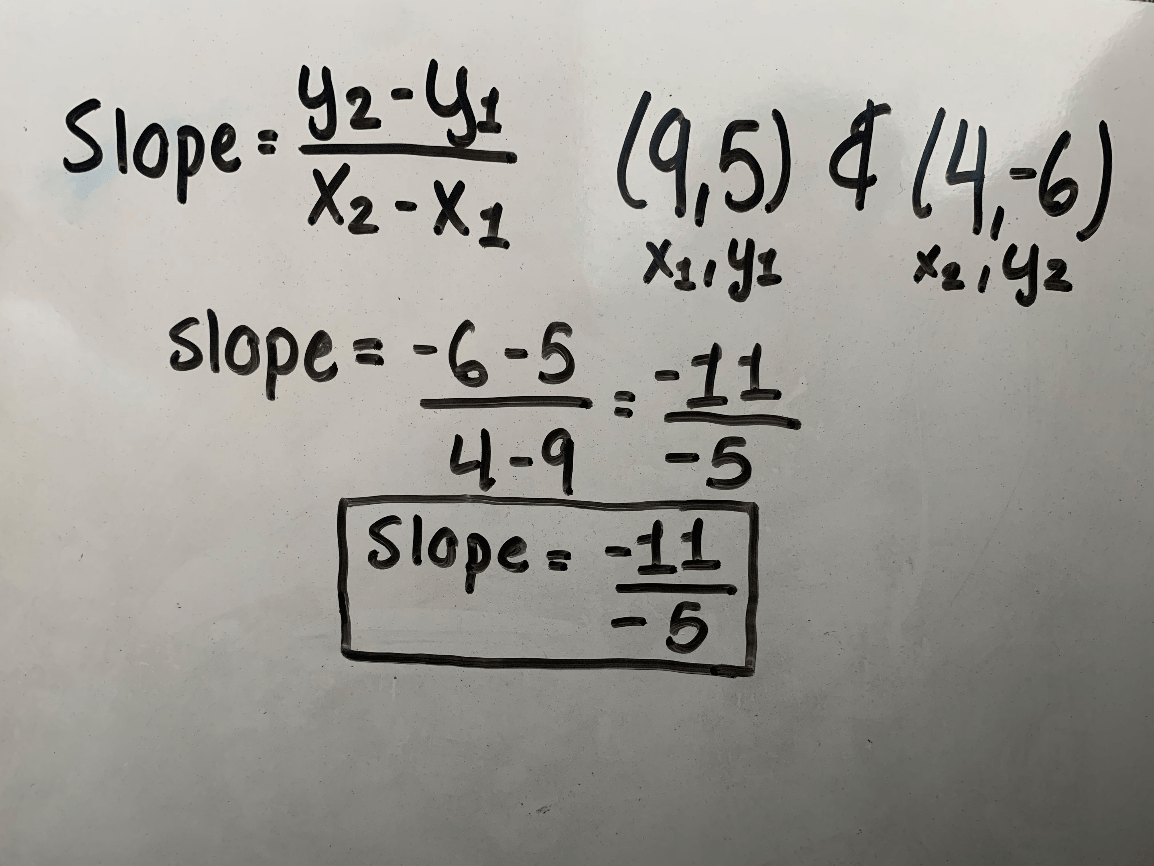 Slope = y2 - y1 / x2 - x1 (9,5) & (4,-6)
x1, y1 x2, y2
slope = -6-5 / 4-9 = -11 / -5
Slope = -11 / -5